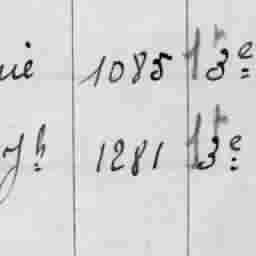 uie 1085 13e
Jh 1281 13e